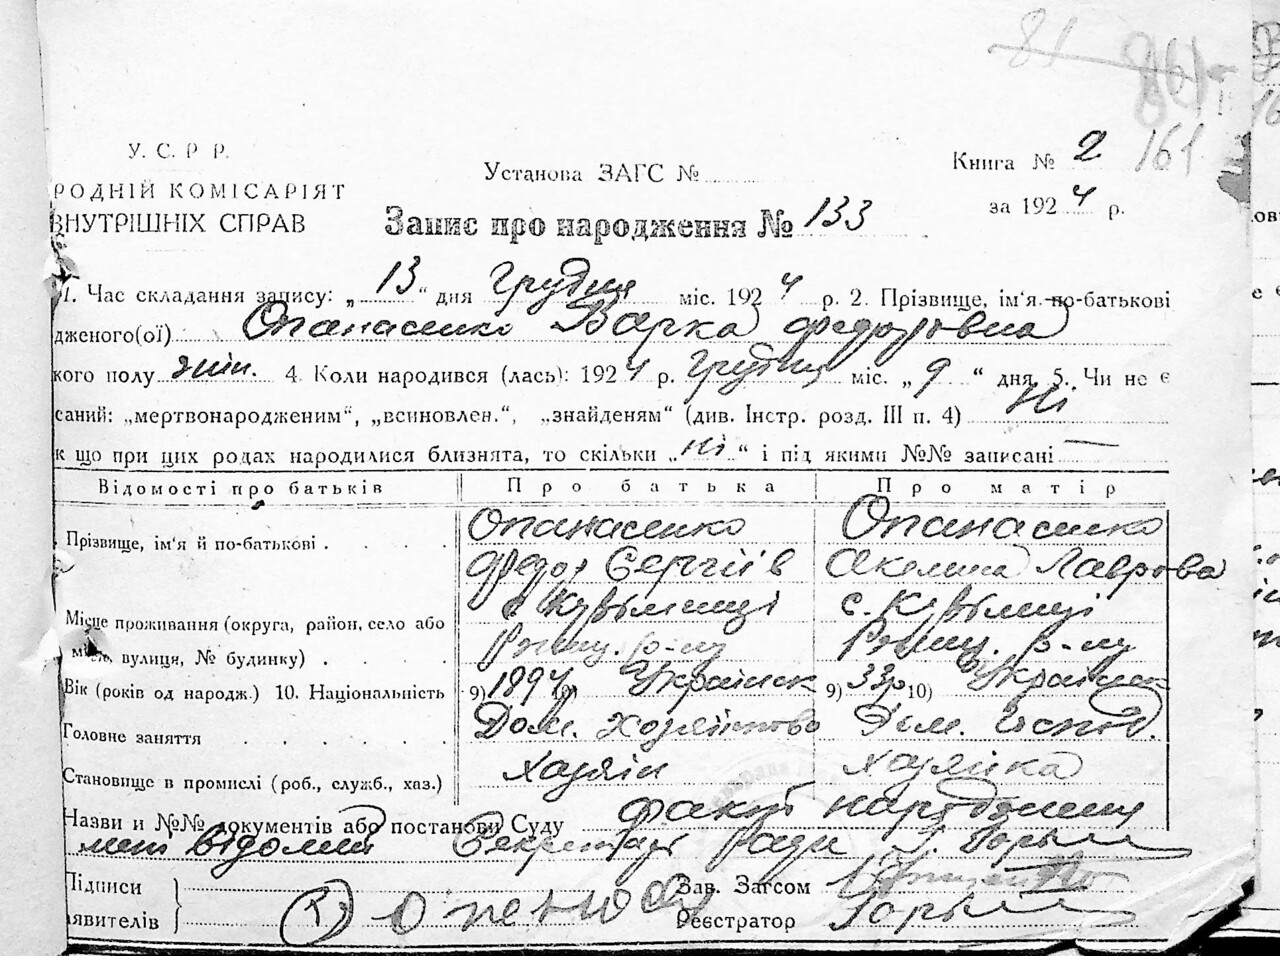 81 86
161
У. С. Р Р.
РОДНІЙ КОМІСАРІЯТ
ВНУТРІШНІХ СПРАВ
Установа ЗАГС №
Книга № 2
за 1924 р.
Запис про народження № 133
1. Час складання запису: „13“ дня Грудня міс. 1924 р. 2. Прізвище, ім'я по-батькові
дженого(ої) Опанасенко Варка Федоровна
кого полу жін. 4. Коли народився (лась): 1924 р. Грудня міс. „9“ дня. 5. Чи не є
саний: „мертвонародженим“, „всиновлен.“, „знайденям“ (див. Інстр. розд. III п. 4) Ні
к що при цих родах народилися близнята, то скільки „Ні“ і під якими №№ записані —
Відомості про батьків Про батька Про матір
Прізвище, ім'я й по-батькові Опанасенко Опанасенко
Федор Сергіїв Акелина Лаврова
Місце проживання (округа, район, село або с.
місто, вулиця, № будинку) р-ну р-ну
Вік (років од народж.) 10. Національність 9) 1894 10) Українск 9) 33р 10) Українск
Головне заняття Дом. Дом.
Становище в промислі (роб., служб., хаз.) Хазяін Хазяйка
Назви и №№ документів або постанови Суду факт народження
мені відомий Секретарь ради
Підписи
явителів
Зав. Загсом
Реєстратор